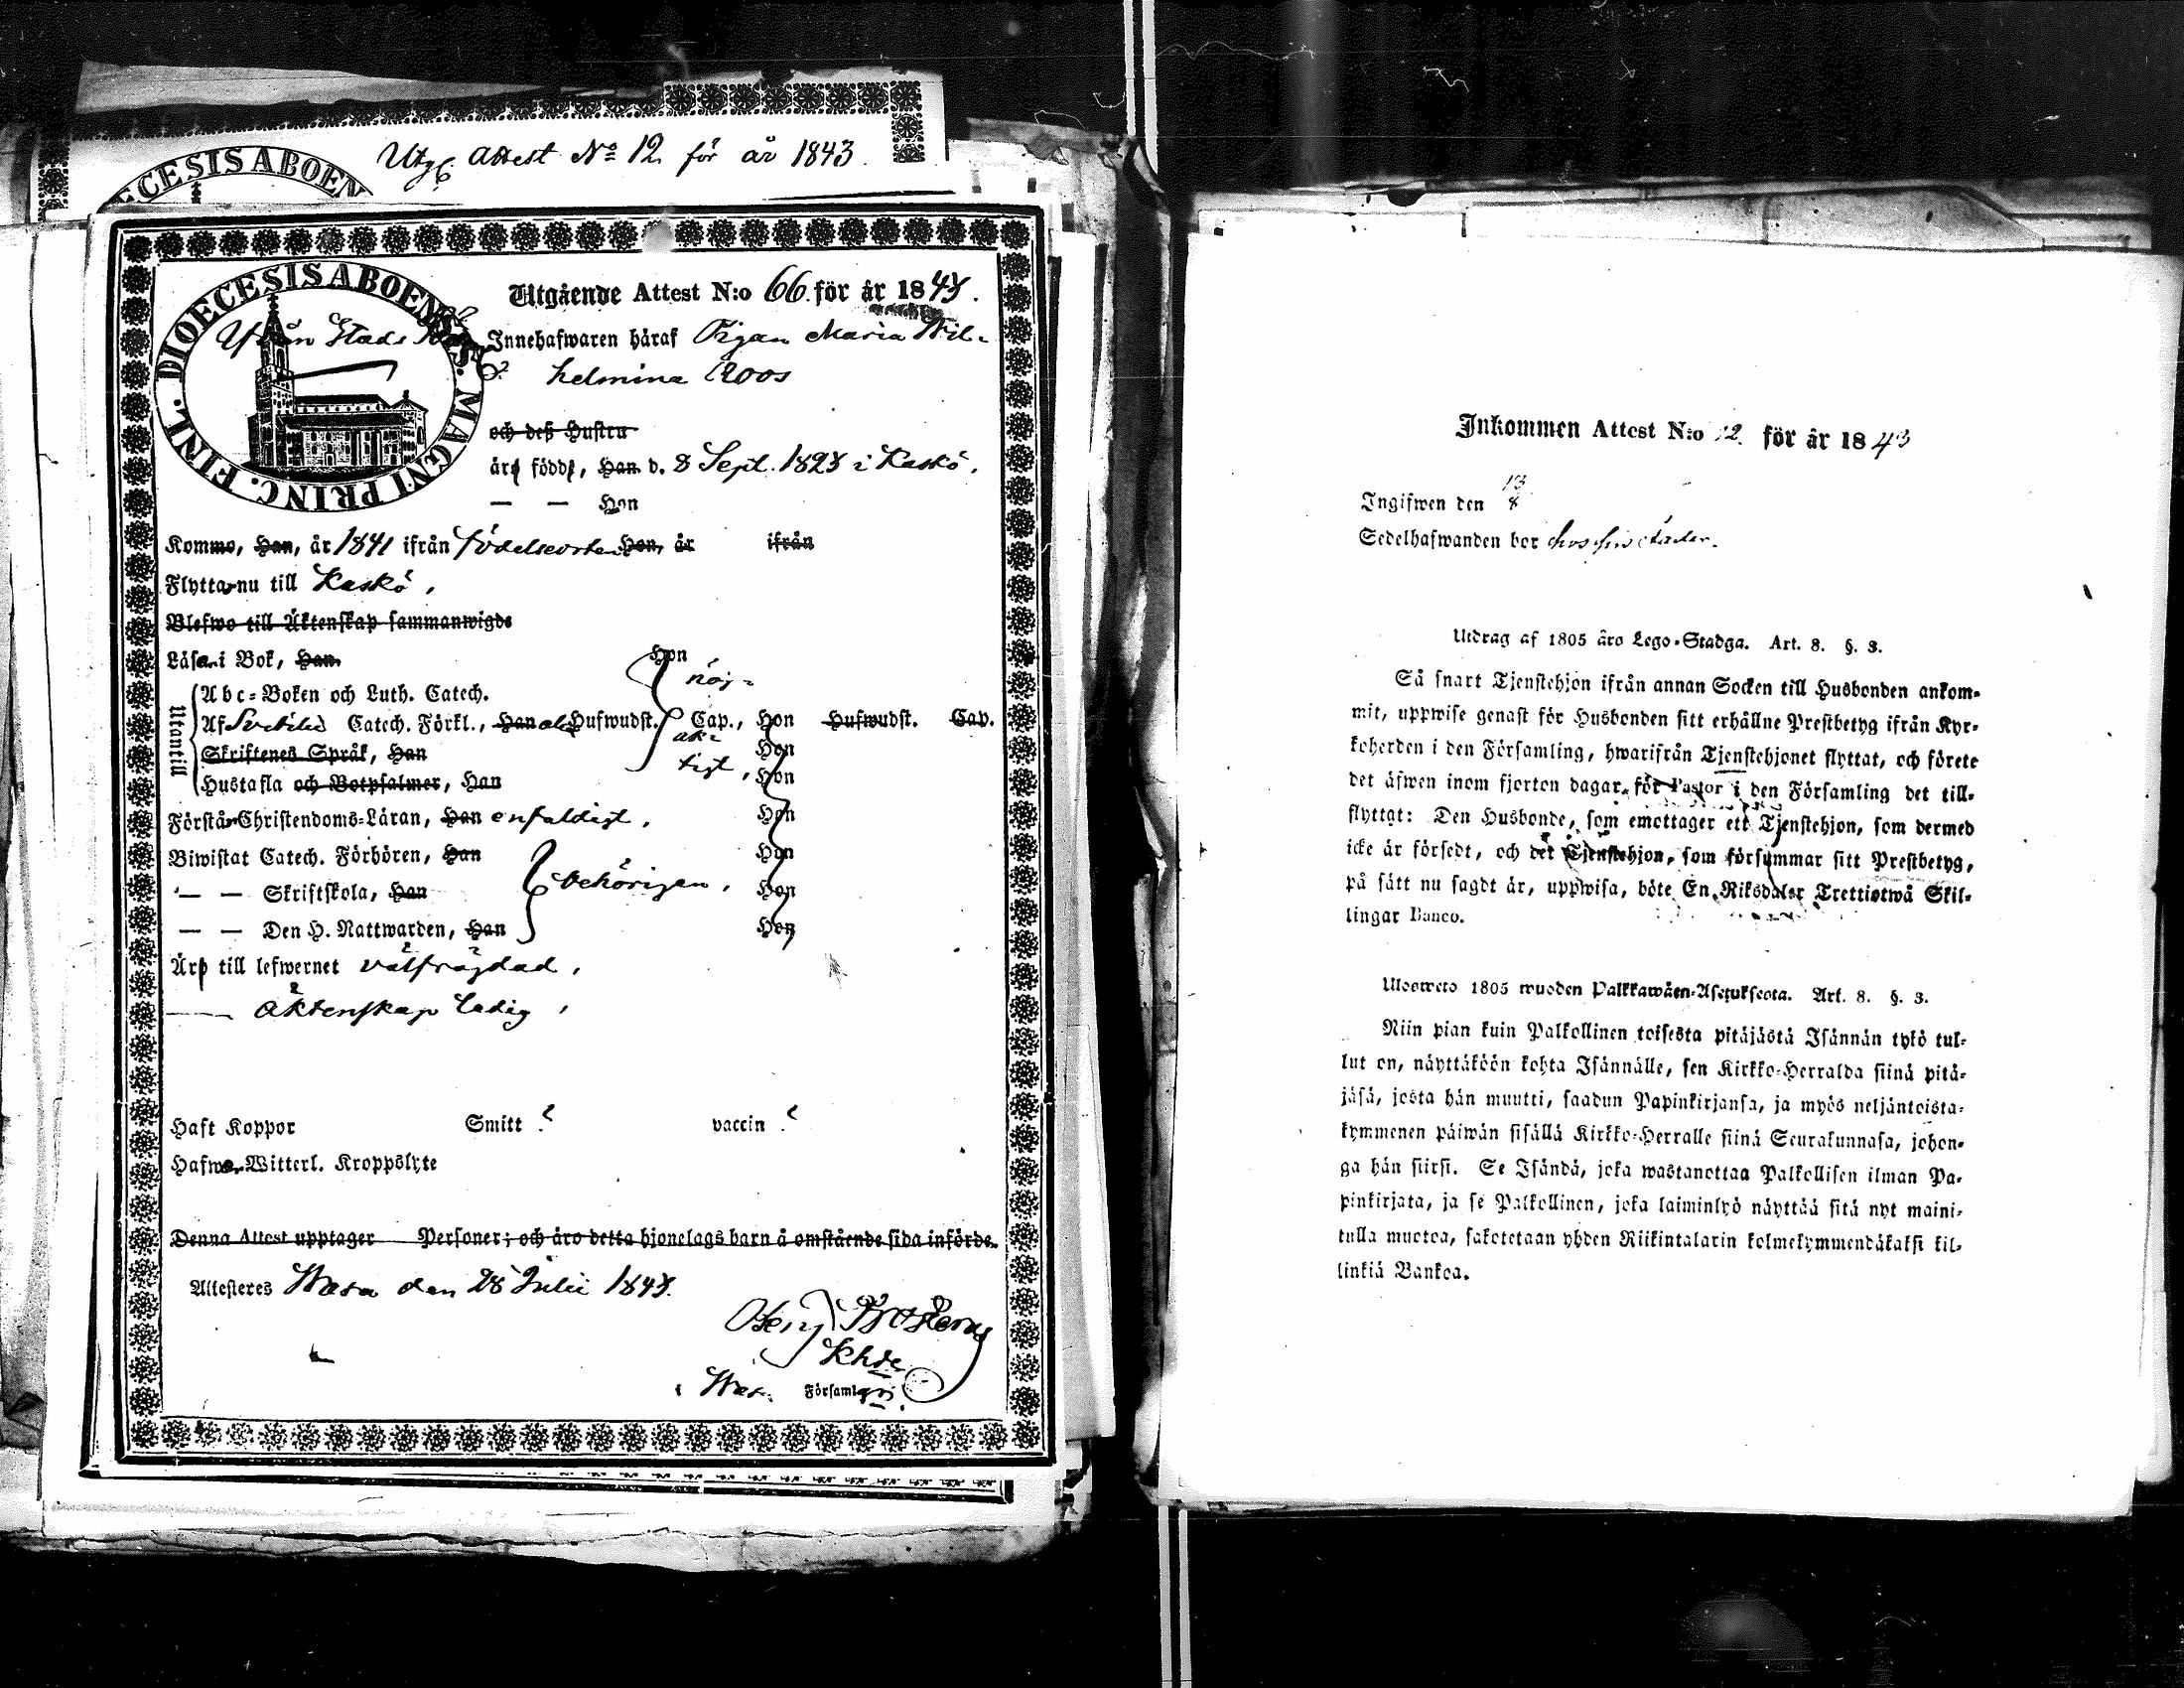 Utg. Attest No 12 för år 1843.
DIOECESIS ABOEN
DIOECESIS ABOENS. MAGNI PRINC. FINL.
Utgående Attest N:o 66. för år 1843.
Innehafwaren häraf Pigan Maria Wil-
helmina Roos
och deß Hustru
äro födde, Han d. 8 Sept. 1823 i Kaskö.
— — Hon
Kommo, Han, år 1841 ifrån födelseorten Hon, år ifrån
Flytta nu till Kaskö.
Blefwo till Äktenskap sammanwigde
Läsa i Bok, Han Hon
nöj-
Utantill
Abc-Boken och Luth. Catech.
Af Svebilii Catech. Förkl., Han Hufwudst. Cap., Hon Hufwudst. Cap.
ak-
Skriftenes Språk, Han Hon
tigt,
Hustafla och Botpsalmer, Han Hon
Förstå Christendoms-Läran, Han enfaldigt, Hon
Biwistat Catech. Förhören, Han Hon
— — Skriftskola, Han behörigen, Hon
— — Den H. Nattwarden, Han Hon
Äro till lefwernet välfrägdad,
— äktenskap ledig,
Haft Koppor Smitt ? vaccin ?
Hafwa Witterl. Kroppslyte
Denna Attest upptager Personer; och äro detta hjonelags barn å omstående sida införde.
Attesteres Wasa den 28 Julii 1843.
Khde
i Wasa Församling.
Inkommen Attest N:o 12. för år 1843
Ingifwen den 13/8
Sedelhafwanden bor hos sin fader.
Utdrag af 1805 åro Lego-Stadga. Art. 8. §. 3.
Så snart Tjenstehjon ifrån annan Socken till Husbonden ankom-
mit, uppwise genast för Husbonden sitt erhållne Prestbetyg ifrån Kyr-
koherden i den Församling, hwarifrån Tjenstehjonet flyttat, och förete
det äfwen inom fjorton dagar för Pastor i den Församling det till-
flyttat: Den Husbonde, som emottager ett Tjenstehjon, som dermed
icke är försedt, och det Tjenstehjon, som försummar sitt Prestbetyg,
på sätt nu sagdt är, uppwisa, böte En Riksdaler Trettiotwå Skil-
lingar Banco.
Ulosweto 1805 wuoden Palkkawäen-Asetuksesta. Art. 8. §. 3.
Niin pian kuin Palkollinen toisesta pitäjästä Isännän tykö tul-
lut on, näyttäköön kohta Isännälle, sen Kirkko-Herralda siinä pitä-
jäsä, josta hän muutti, saadun Papinkirjansa, ja myös neljäntoista-
kymmenen päiwän sisällä Kirkko-Herralle siinä Seurakunnasa, johon-
ga hän siirsi. Se Isändä, joka wastanottaa Palkollisen ilman Pa-
pinkirjata, ja se Palkollinen, joka laiminlyö näyttää sitä nyt maini-
tulla muotoa, sakotetaan yhden Riikintalarin kolmekymmendäkaksi kil-
linkiä Bankoa.